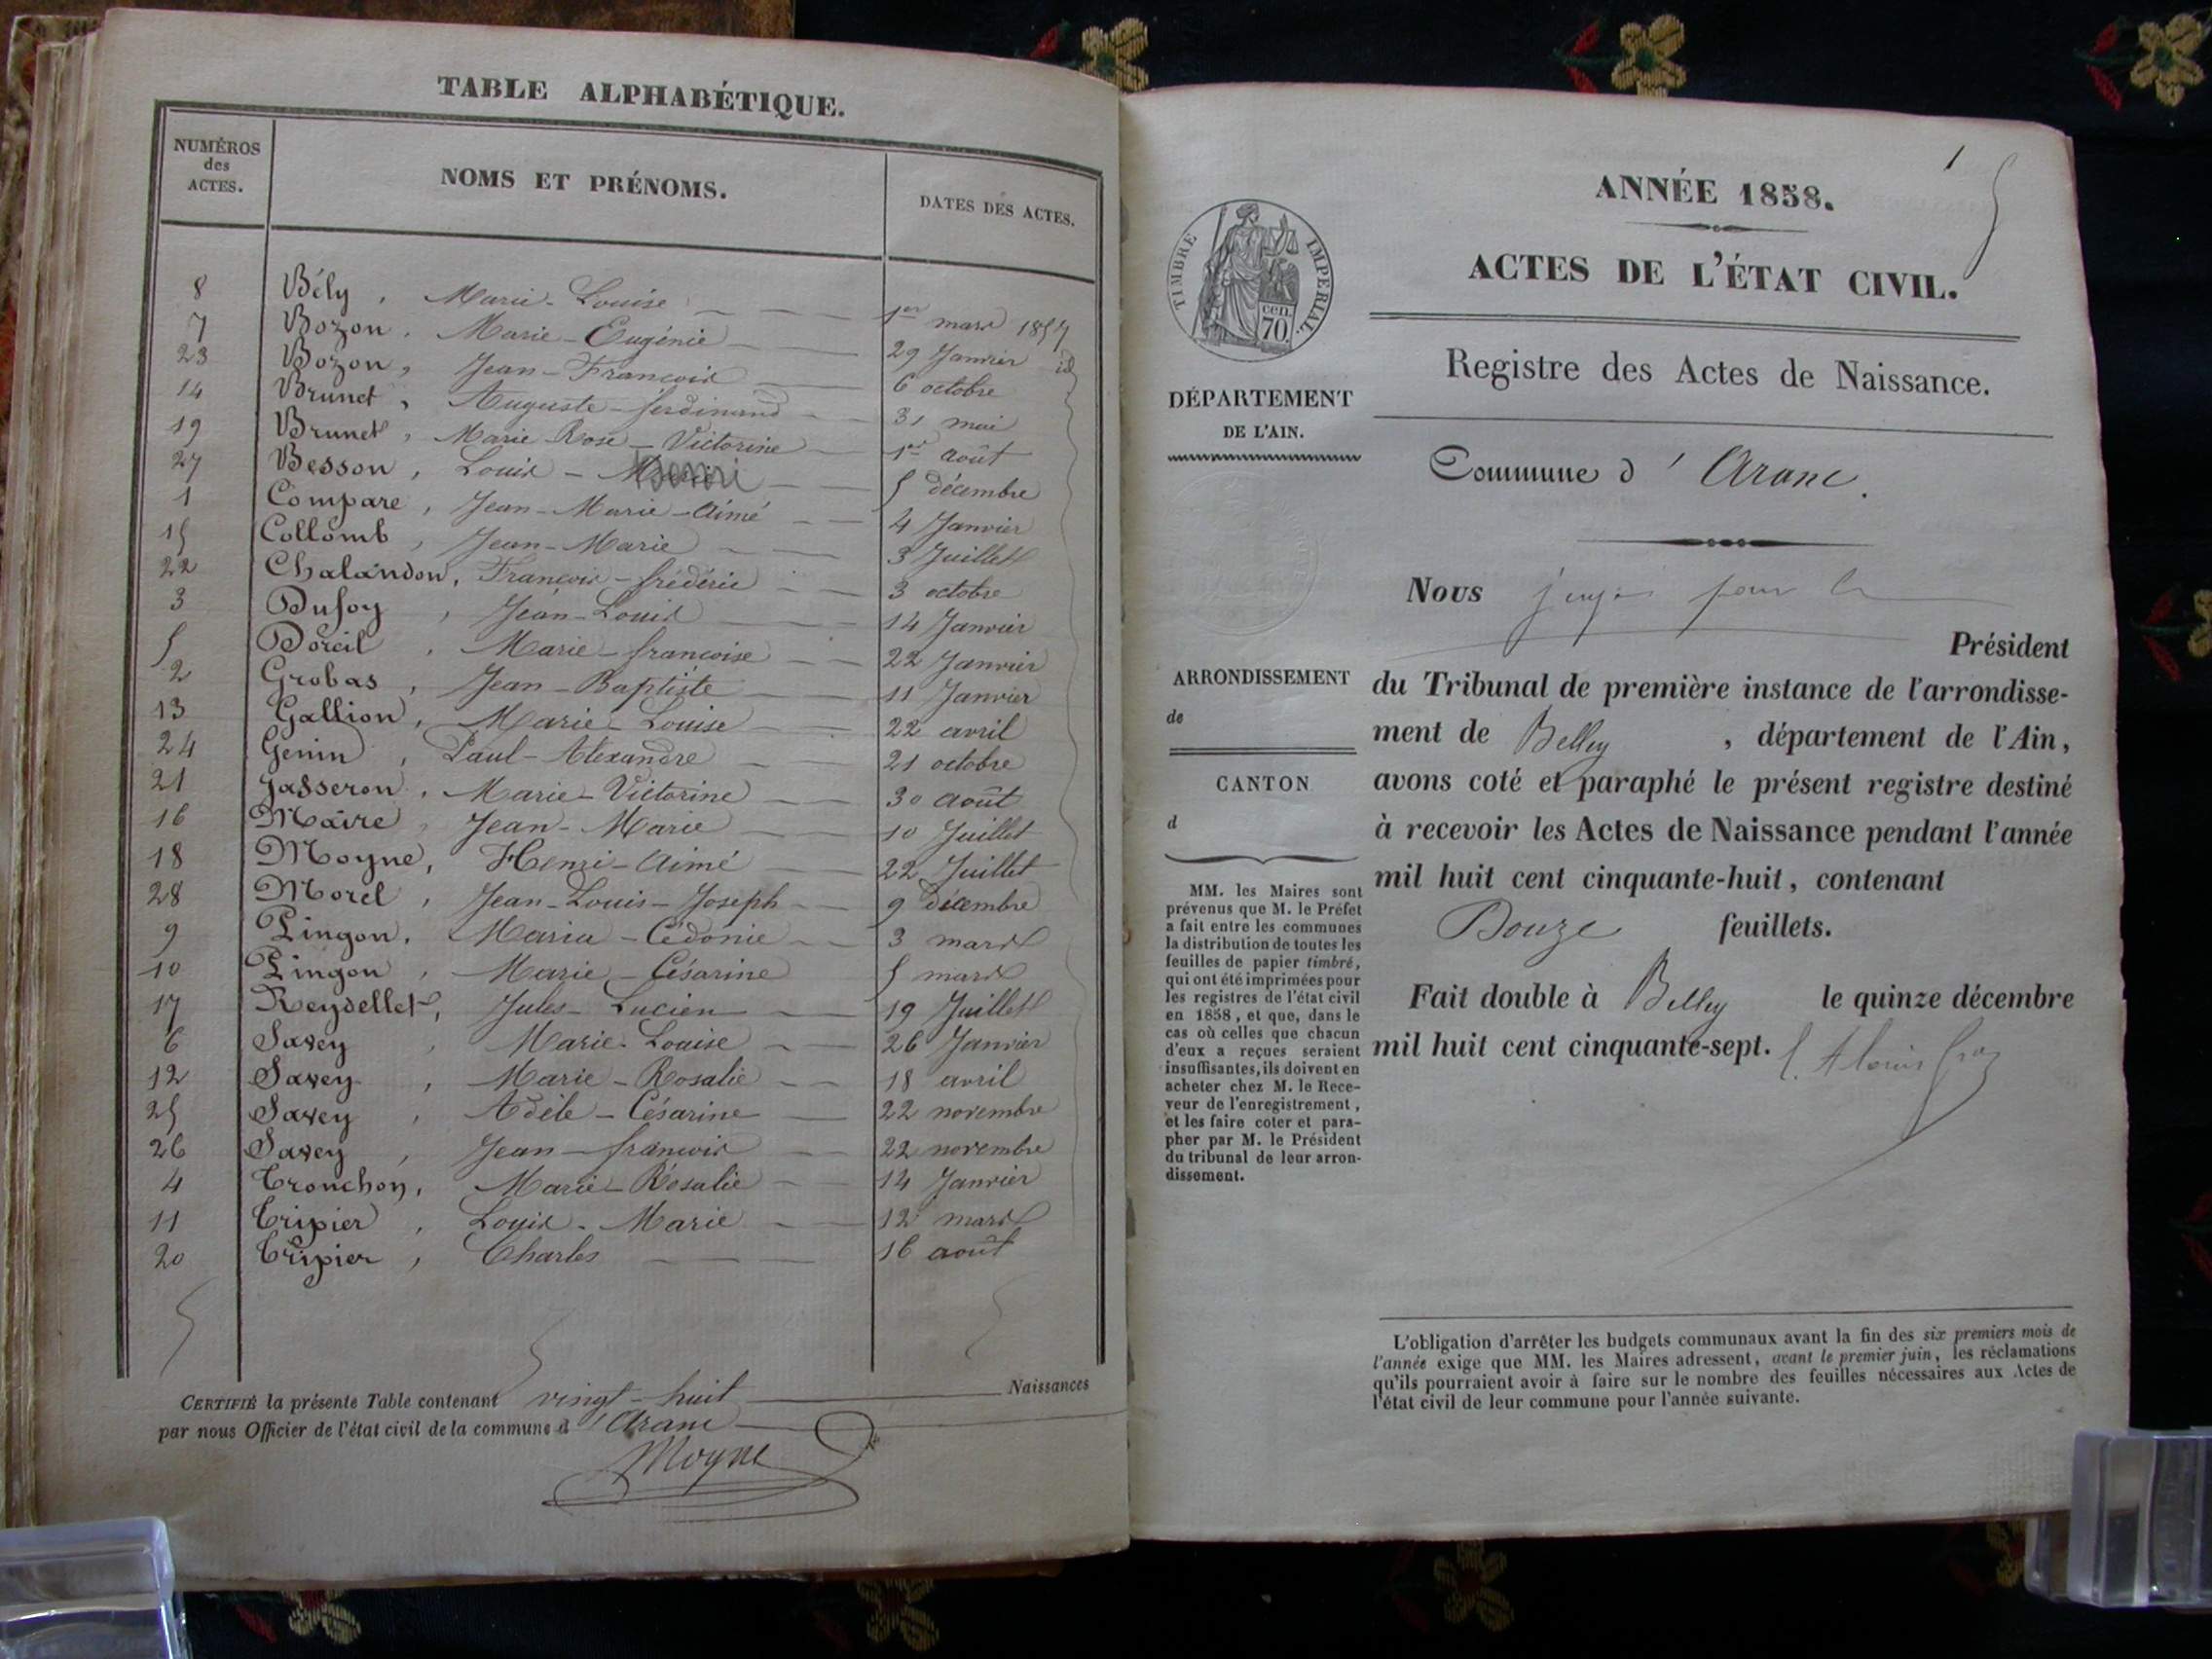 TABLE ALPHABÉTIQUE.
NUMÉROS des ACTES. NOMS ET PRÉNOMS. DATES DES ACTES.
8 Bély, Marie-Louise 1er mars 1857
7 Bozon, Marie-Eugénie 29 Janvier id
23 Bozon, Jean-François 6 octobre
14 Brunet, Auguste-ferdinand 31 mai
19 Brunet, Marie Rose-Victorine 1er août
27 Besson, Louis - Henri 5 décembre
1 Compare, Jean-Marie-Aimé 4 Janvier
15 Collomb, Jean-Marie 3 Juillet
22 Chalandon, François-frédéric 3 octobre
3 Dufoy, Jean-Louis 14 Janvier
5 Doreil, Marie-françoise 22 Janvier
2 Grobas, Jean-Baptiste 11 Janvier
13 Gallion, Marie-Louise 22 avril
24 Genin, Paul-Alexandre 21 octobre
21 Jasseron, Marie-Victorine 30 août
16 Maire, Jean-Marie 10 Juillet
18 Moyne, Henri-Aimé 22 Juillet
28 Morel, Jean-Louis-Joseph 9 décembre
9 Pingon, Maria-Cédonie 3 mars
10 Pingon, Marie-Césarine 5 mars
17 Reydellet, Jules-Lucien 19 Juillet
6 Savey, Marie-Louise 26 Janvier
12 Savey, Marie-Rosalie 18 avril
25 Savey, Adèle-Césarine 22 novembre
26 Savey, Jean-françois 22 novembre
4 Tronchon, Marie-Rosalie 14 Janvier
11 Tripier, Louis-Marie 12 mars
20 Tripier, Charles 16 août
CERTIFIÉ la présente Table contenant vingt-huit Naissances
par nous Officier de l'état civil de la commune d'Aranc
Moyne
1
ANNÉE 1858.
ACTES DE L'ÉTAT CIVIL.
TIMBRE IMPERIAL.
cen.
70.
Registre des Actes de Naissance.
DÉPARTEMENT
DE L'AIN.
Commune d'Aranc.
Nous juge pour le
Président
ARRONDISSEMENT
de
CANTON
d
du Tribunal de première instance de l'arrondisse-
ment de Belley, département de l'Ain,
avons coté et paraphé le présent registre destiné
à recevoir les Actes de Naissance pendant l'année
mil huit cent cinquante-huit, contenant
Douze feuillets.
Fait double à Belley le quinze décembre
mil huit cent cinquante-sept.
MM. les Maires sont
prévenus que M. le Préfet
a fait entre les communes
la distribution de toutes les
feuilles de papier timbré,
qui ont été imprimées pour
les registres de l'état civil
en 1858, et que, dans le
cas où celles que chacun
d'eux a reçues seraient
insuffisantes, ils doivent en
acheter chez M. le Rece-
veur de l'enregistrement,
et les faire coter et para-
pher par M. le Président
du tribunal de leur arron-
dissement.
L'obligation d'arrêter les budgets communaux avant la fin des six premiers mois de
l'année exige que MM. les Maires adressent, avant le premier juin, les réclamations
qu'ils pourraient avoir à faire sur le nombre des feuilles nécessaires aux Actes de
l'état civil de leur commune pour l'année suivante.